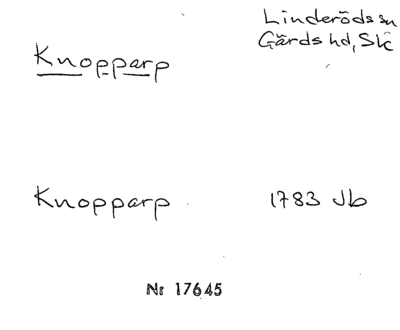 Linderöds sn
Gärds hd, Sk
Knopparp
Knopparp 1783 Jb
Nr 17645